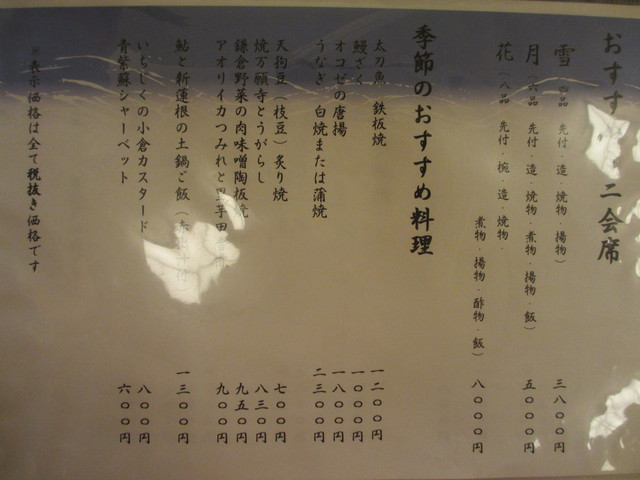 おすす ニ会席
雪（四品 先付・造・焼物・揚物） 三八〇〇円
月（六品 先付・造・焼物・煮物・揚物・飯） 五〇〇〇円
花（八品 先付・椀・造・焼物・
煮物・揚物・酢物・飯） 八〇〇〇円
季節のおすすめ料理
太刀魚 鉄板焼 一二〇〇円
鰻ざく 一〇〇〇円
オコゼの唐揚 一八〇〇円
うなぎ 白焼または蒲焼 二三〇〇円
天狗豆（枝豆）炙り焼 七〇〇円
焼万願寺とうがらし 八三〇円
鎌倉野菜の肉味噌陶板焼 九五〇円
アオリイカつみれと里芋田 九〇〇円
鮎と新蓮根の土鍋ご飯 一三〇〇円
いちじくの小倉カスタード 八〇〇円
青紫蘇シャーベット 六〇〇円
※表示価格は全て税抜き価格です